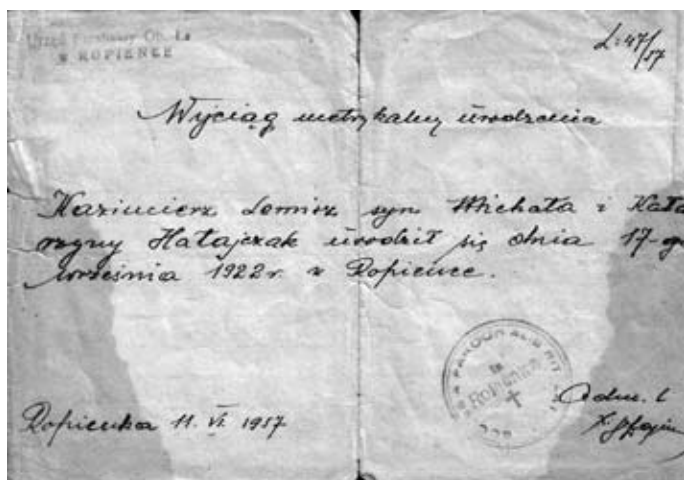 Urząd Parafialny Ob. Łac
w ROPIENCE
L: 47/57
Wyciąg metrykalny urodzenia
Kazimierz Lomisz syn Michała i Kata
rzyny Hałajczak urodził się dnia 17-go
września 1922 r. w Ropience.
PAROCHIALIS RIT
Ropienka
Ropienka 11. VI. 1957
Adm.